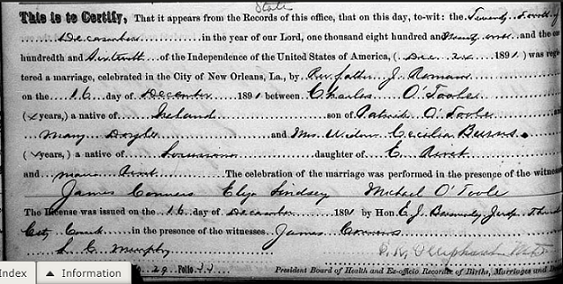 State
This is to Certify, That it appears from the Records of this office, that on this day, to-wit: the Twenty
December in the year of our Lord, one thousand eight hundred and Ninety one and the one
hundredth and Sixteenth of the Independence of the United States of America, (Dec 1891) was regis
tered a marriage, celebrated in the City of New Orleans, La., by Rev. father J.
on the 16 day of December 1891 between Charles O'Toole
(years,) a native of Ireland son of Patrick O'Toole
Mary Doyle and Mrs. Widow Cecilia Burns.
(years,) a native of daughter of E.
and The celebration of the marriage was performed in the presence of the witnesses
James Conners Eliza Lindsey Michael O'Toole
The License was issued on the 16 day of December 1891 by Hon E. J. Judge Third
City Court in the presence of the witnesses James Conners
Murphy
29 Folio
President Board of Health and Ex-officio Recorder of Births, Marriages and
Index
Information